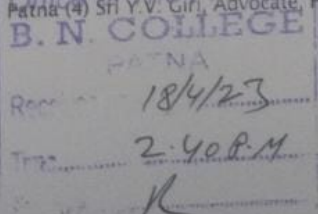 Patna (4) Sri Y.V. Giri, Advocate,
B. N. COLLEGE
PATNA
18/4/23
Time 2.40 P.M
R